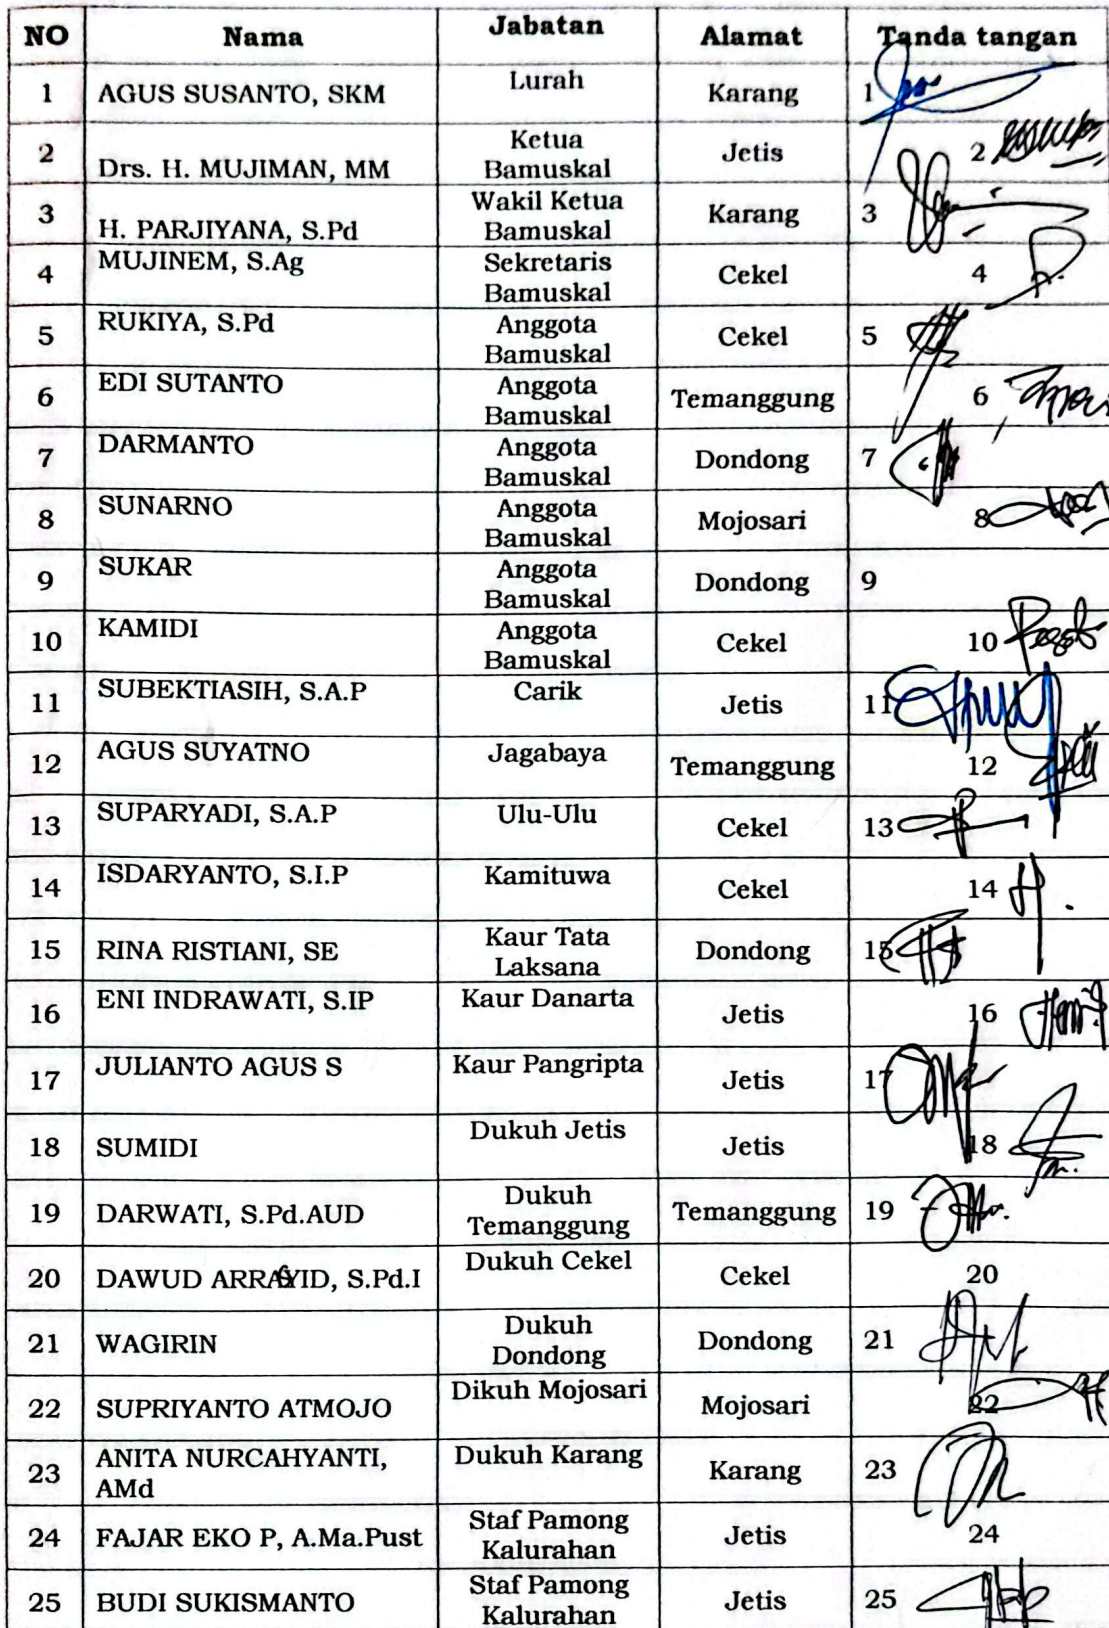 NO Nama Jabatan Alamat Tanda tangan
1 AGUS SUSANTO, SKM Lurah Karang 1
2 Drs. H. MUJIMAN, MM Ketua Bamuskal Jetis 2
3 H. PARJIYANA, S.Pd Wakil Ketua Bamuskal Karang 3
4 MUJINEM, S.Ag Sekretaris Bamuskal Cekel 4
5 RUKIYA, S.Pd Anggota Bamuskal Cekel 5
6 EDI SUTANTO Anggota Bamuskal Temanggung 6
7 DARMANTO Anggota Bamuskal Dondong 7
8 SUNARNO Anggota Bamuskal Mojosari 8
9 SUKAR Anggota Bamuskal Dondong 9
10 KAMIDI Anggota Bamuskal Cekel 10
11 SUBEKTIASIH, S.A.P Carik Jetis 11
12 AGUS SUYATNO Jagabaya Temanggung 12
13 SUPARYADI, S.A.P Ulu-Ulu Cekel 13
14 ISDARYANTO, S.I.P Kamituwa Cekel 14
15 RINA RISTIANI, SE Kaur Tata Laksana Dondong 15
16 ENI INDRAWATI, S.IP Kaur Danarta Jetis 16
17 JULIANTO AGUS S Kaur Pangripta Jetis 17
18 SUMIDI Dukuh Jetis Jetis 18
19 DARWATI, S.Pd.AUD Dukuh Temanggung Temanggung 19
20 DAWUD ARRASYID, S.Pd.I Dukuh Cekel Cekel 20
21 WAGIRIN Dukuh Dondong Dondong 21
22 SUPRIYANTO ATMOJO Dikuh Mojosari Mojosari 22
23 ANITA NURCAHYANTI, AMd Dukuh Karang Karang 23
24 FAJAR EKO P, A.Ma.Pust Staf Pamong Kalurahan Jetis 24
25 BUDI SUKISMANTO Staf Pamong Kalurahan Jetis 25